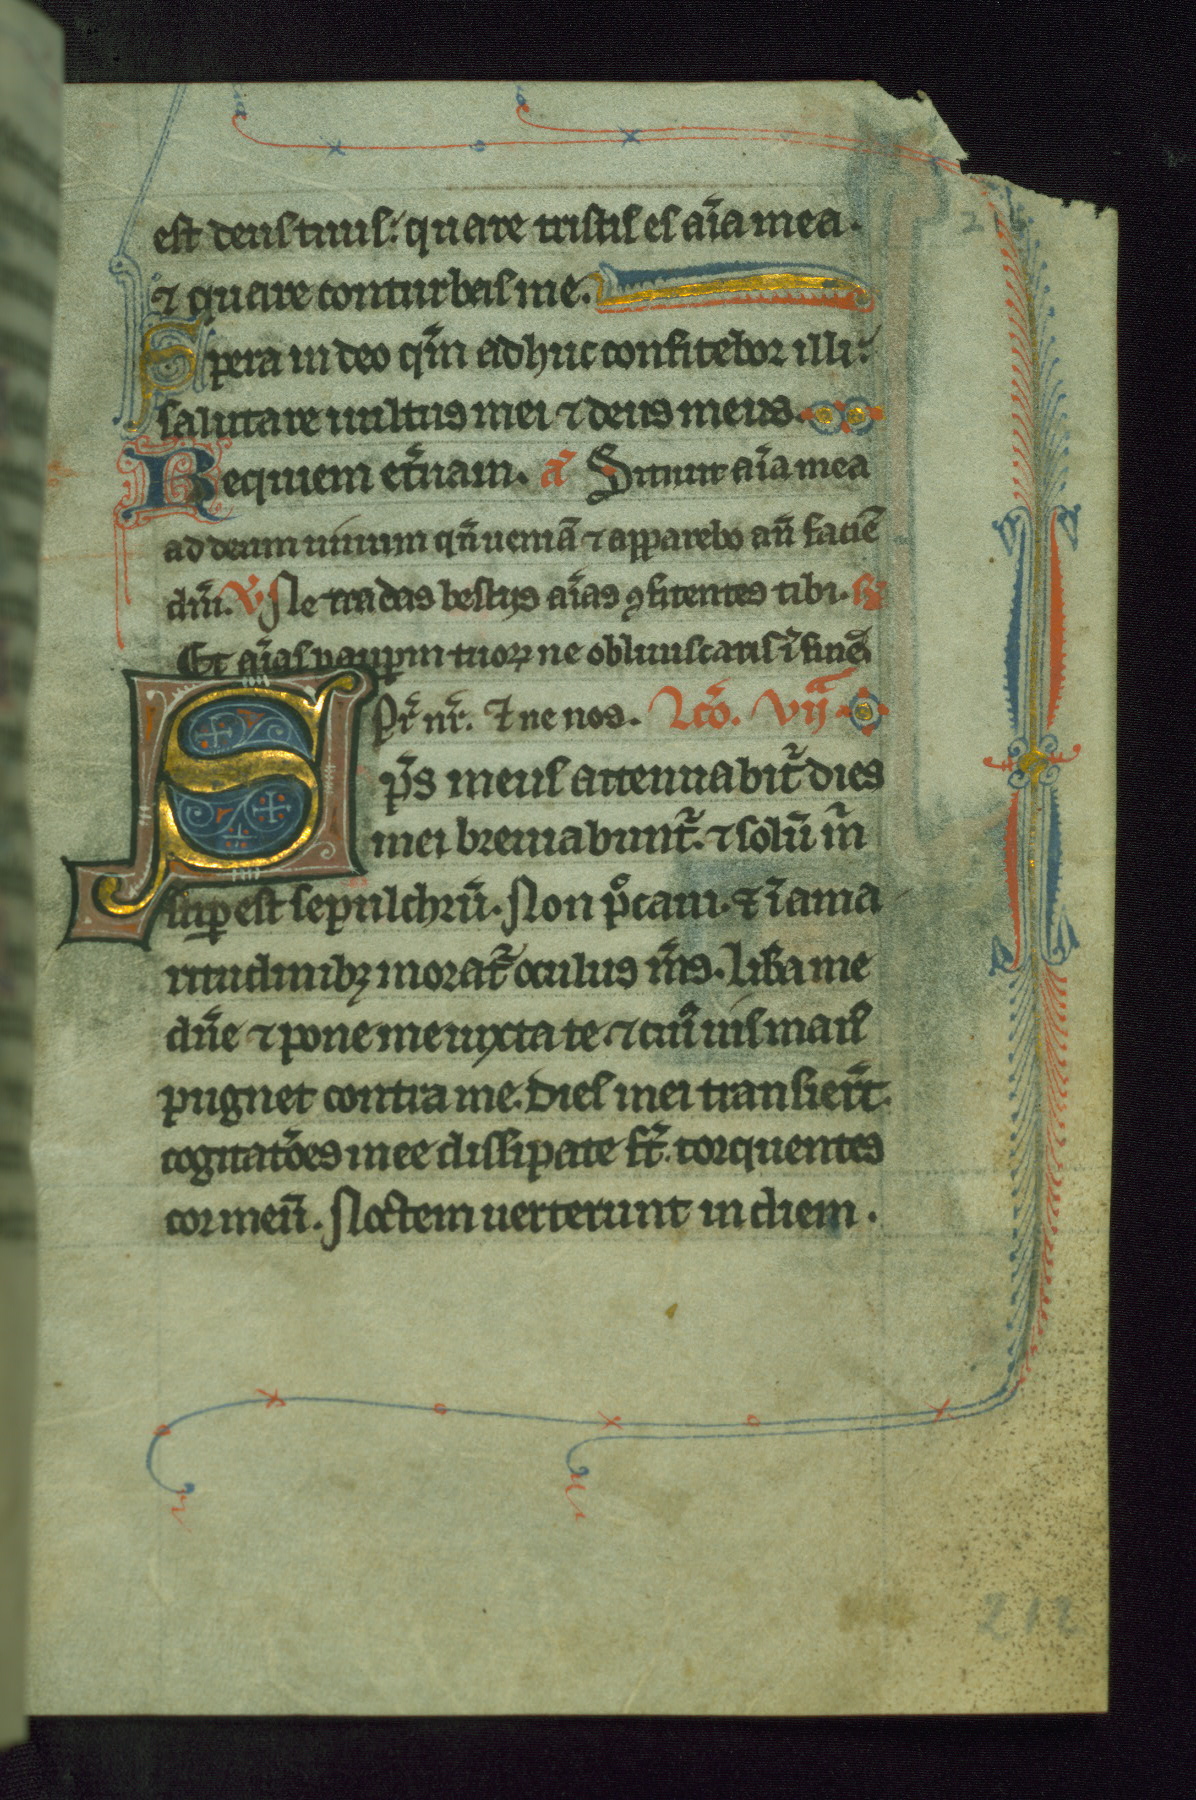 est deus tuus: quare tristis es aīa mea.
⁊ quare conturbas me.
Spera in deo qm̄ adhuc confitebor illi:
salutare uultus mei ⁊ deus meus.
Requiem et̄nam. a᷒ Sitiuit aīa mea
ad deum uiuum qn̄ ueniā ⁊ apparebo an̄ faciē
dn̄i. V᷒ Ne tradas bestiis aīas ꝯfitentes tibi.
Et aīas paupm tuoꝝ ne obliuiscaris ī finē
Pr̄ nr̄. Et ne nos. Lcō. vij
Sp̄s meus attenuabit᷑ dies
mei breuiabunt᷑. ⁊ solū m̄
suꝑest sepulchrū. Non pͦcaui. ⁊ ī ama
ritudinibꝫ morat᷑ oculus ms̄. Libā me
dn̄e ⁊ pone me iuxta te ⁊ cuiuis manꝰ
pugnet contra me. Dies mei transier̄t.
cogitatōes mee dissipate st̄. torquentes
cor meū. Noctem uerterunt in diem.
212